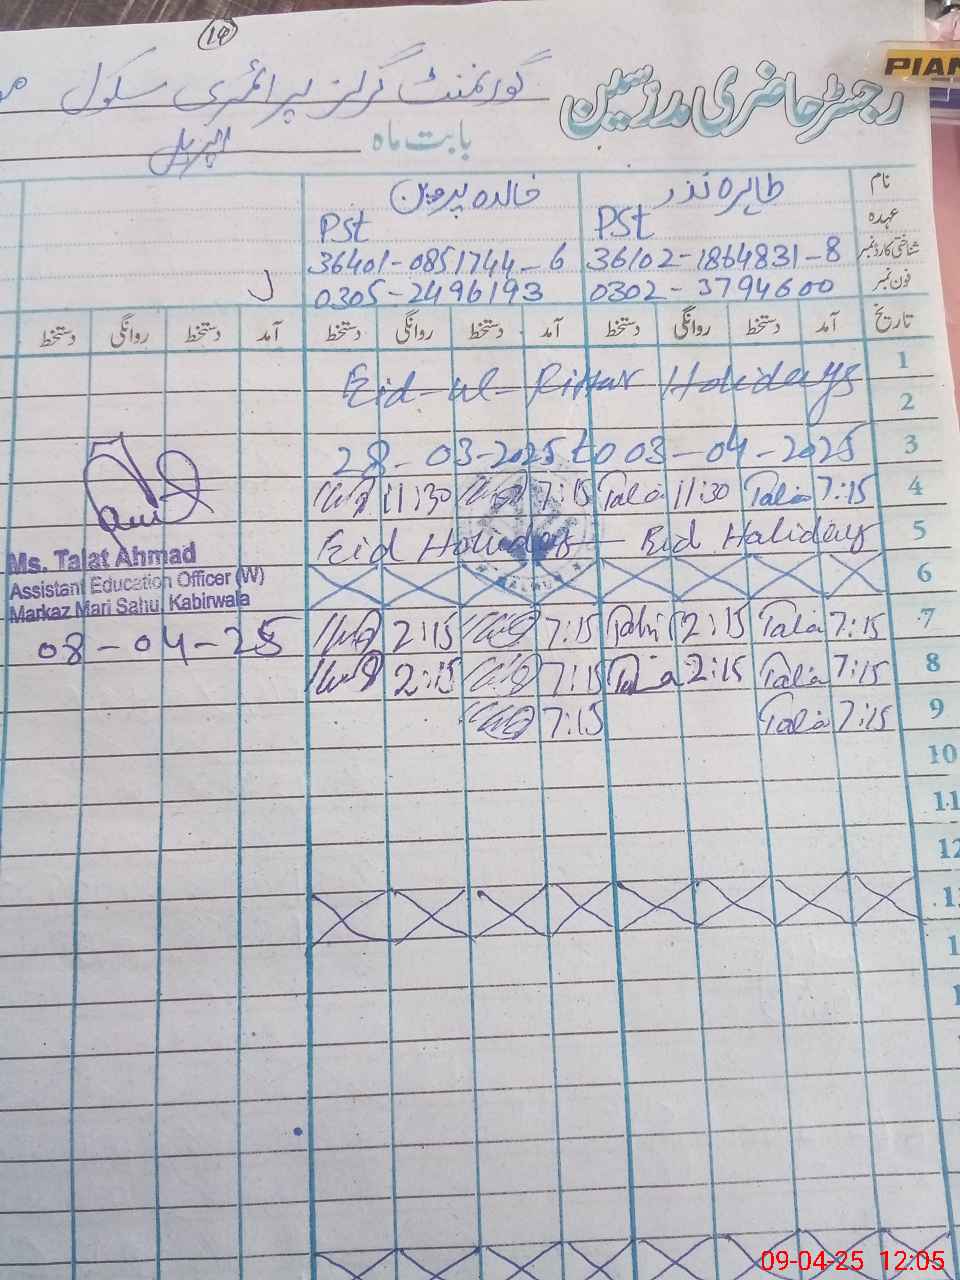 14
PIAN
رجسٹر حاضری مدرسین گورنمنٹ گرلز پرائمری سکول
بابت ماہ اپریل
نام طاہرہ نذر خالدہ پروین
عہدہ PSt PSt
شناختی کارڈ نمبر 36102-1864831-8 36401-0851744-6
فون نمبر 0302-3794600 0305-2496193
تاریخ آمد دستخط روانگی دستخط آمد دستخط روانگی دستخط آمد دستخط روانگی دستخط
1 Eid-ul-Fitter Holidays
2
3 28-03-2025 to 03-04-2025
4 11:30 7:15 11:30 7:15
5 Eid Holiday — Eid Holidays
6
Ms. Talat Ahmad
Assistant Education Officer (W)
Markaz Mari Sahu, Kabirwala
08-04-25
7 2:15 7:15 2:15 7:15
8 2:15 7:15 2:15 7:15
9 7:15 7:15
10
11
12
09-04-25 12:05